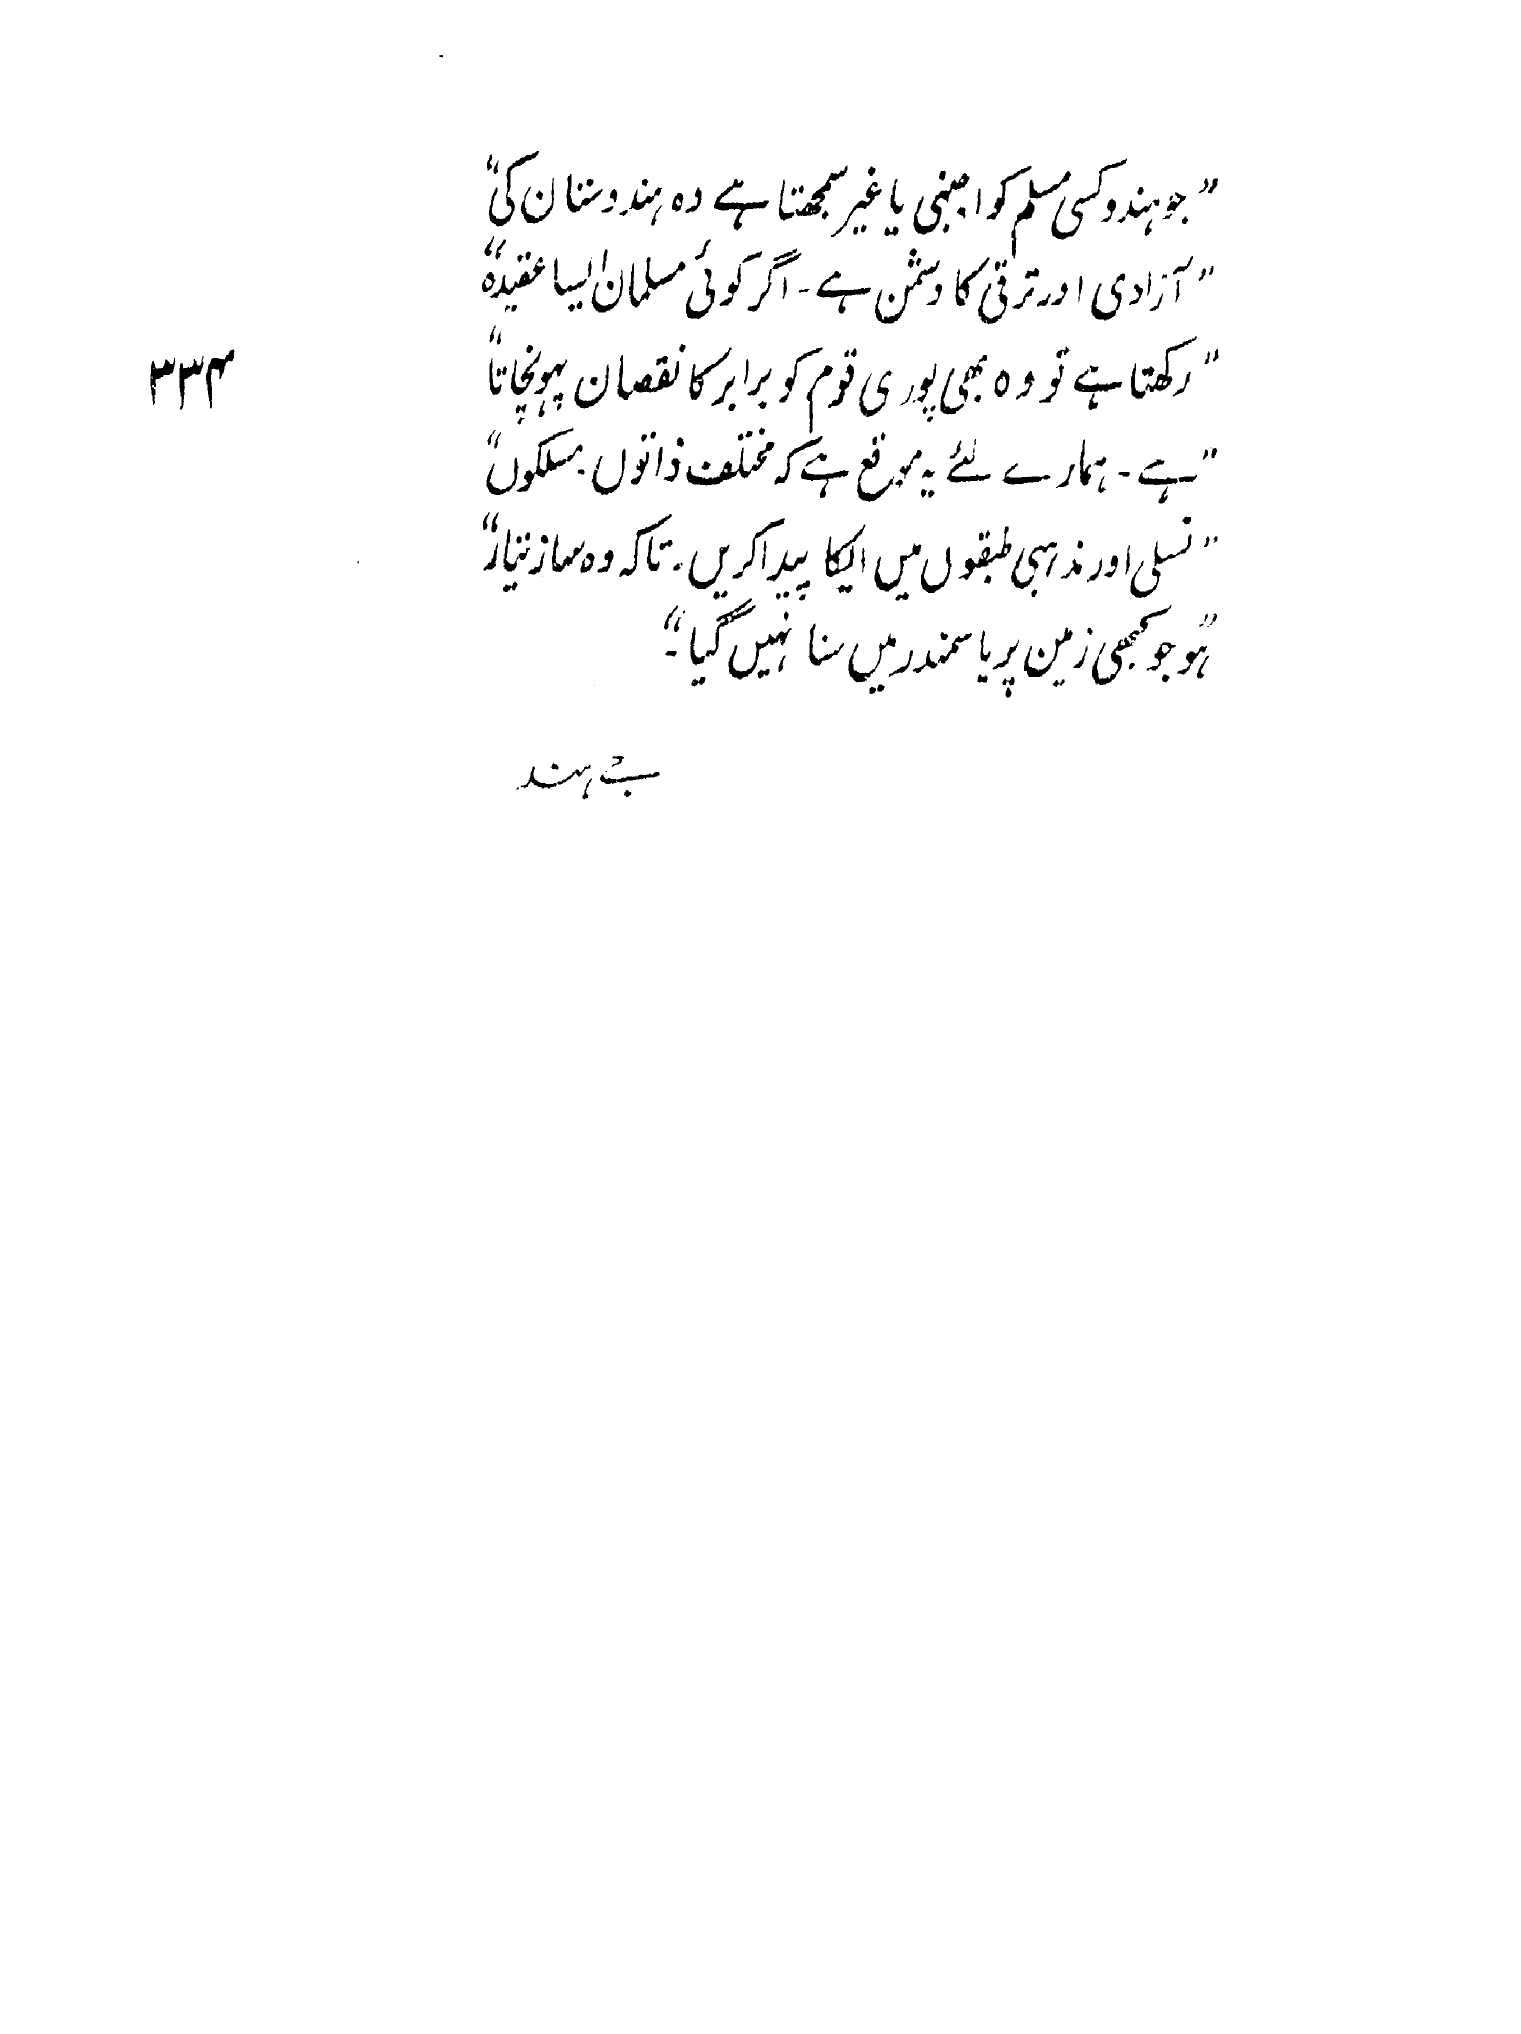 ”جو ہندو کسی مسلم کو اجنبی یا غیر سمجھتا ہے وہ ہندوستان کی“
”آزادی اور ترقی کا دشمن ہے۔ اگر کوئی مسلمان ایسا عقیدہ“
”رکھتا ہے تو وہ بھی پوری قوم کو برابر کا نقصان پہونچاتا“
۳۳۴
”ہے۔ ہمارے لئے یہ موقع ہے کہ مختلف ذاتوں۔ مسلکوں“
”نسلی اور مذہبی طبقوں میں ایکا پیدا کریں۔ تاکہ وہ ساز تیار“
”ہو جو کبھی زمین پر یا سمندر میں سنا نہیں گیا۔“
جے ہند